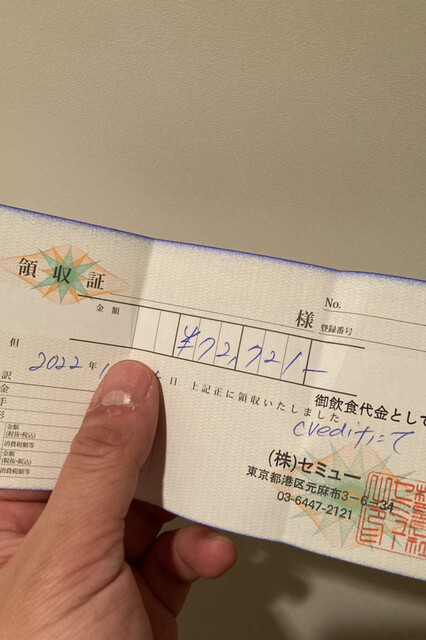 領収証
No.
様
登録番号
金額
¥72,721-
但
御飲食代金として
2022年
日 上記正に領収いたしました
creditにて
訳
金
手
形
金額
(税抜・税込)
消費税額等
金額
(税抜・税込)
消費税額等
(株)セミュー
東京都港区元麻布3-6-34
03-6447-2121